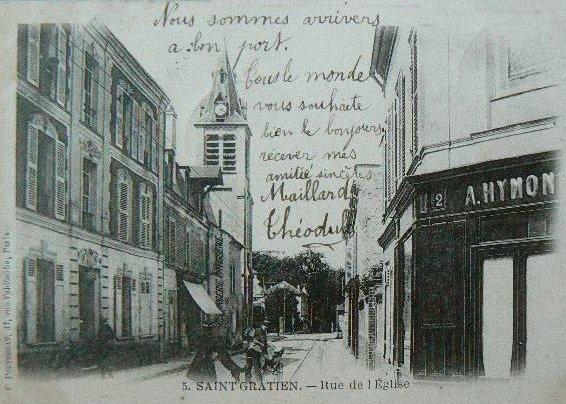 Nous sommes arrivers
a bon port.
Tous le monde
vous souhaite
bien le bonjours
recever mes
amitié sincères
Maillard
Théodule
2 A. HYMON
5. SAINT GRATIEN. — Rue de l'Église